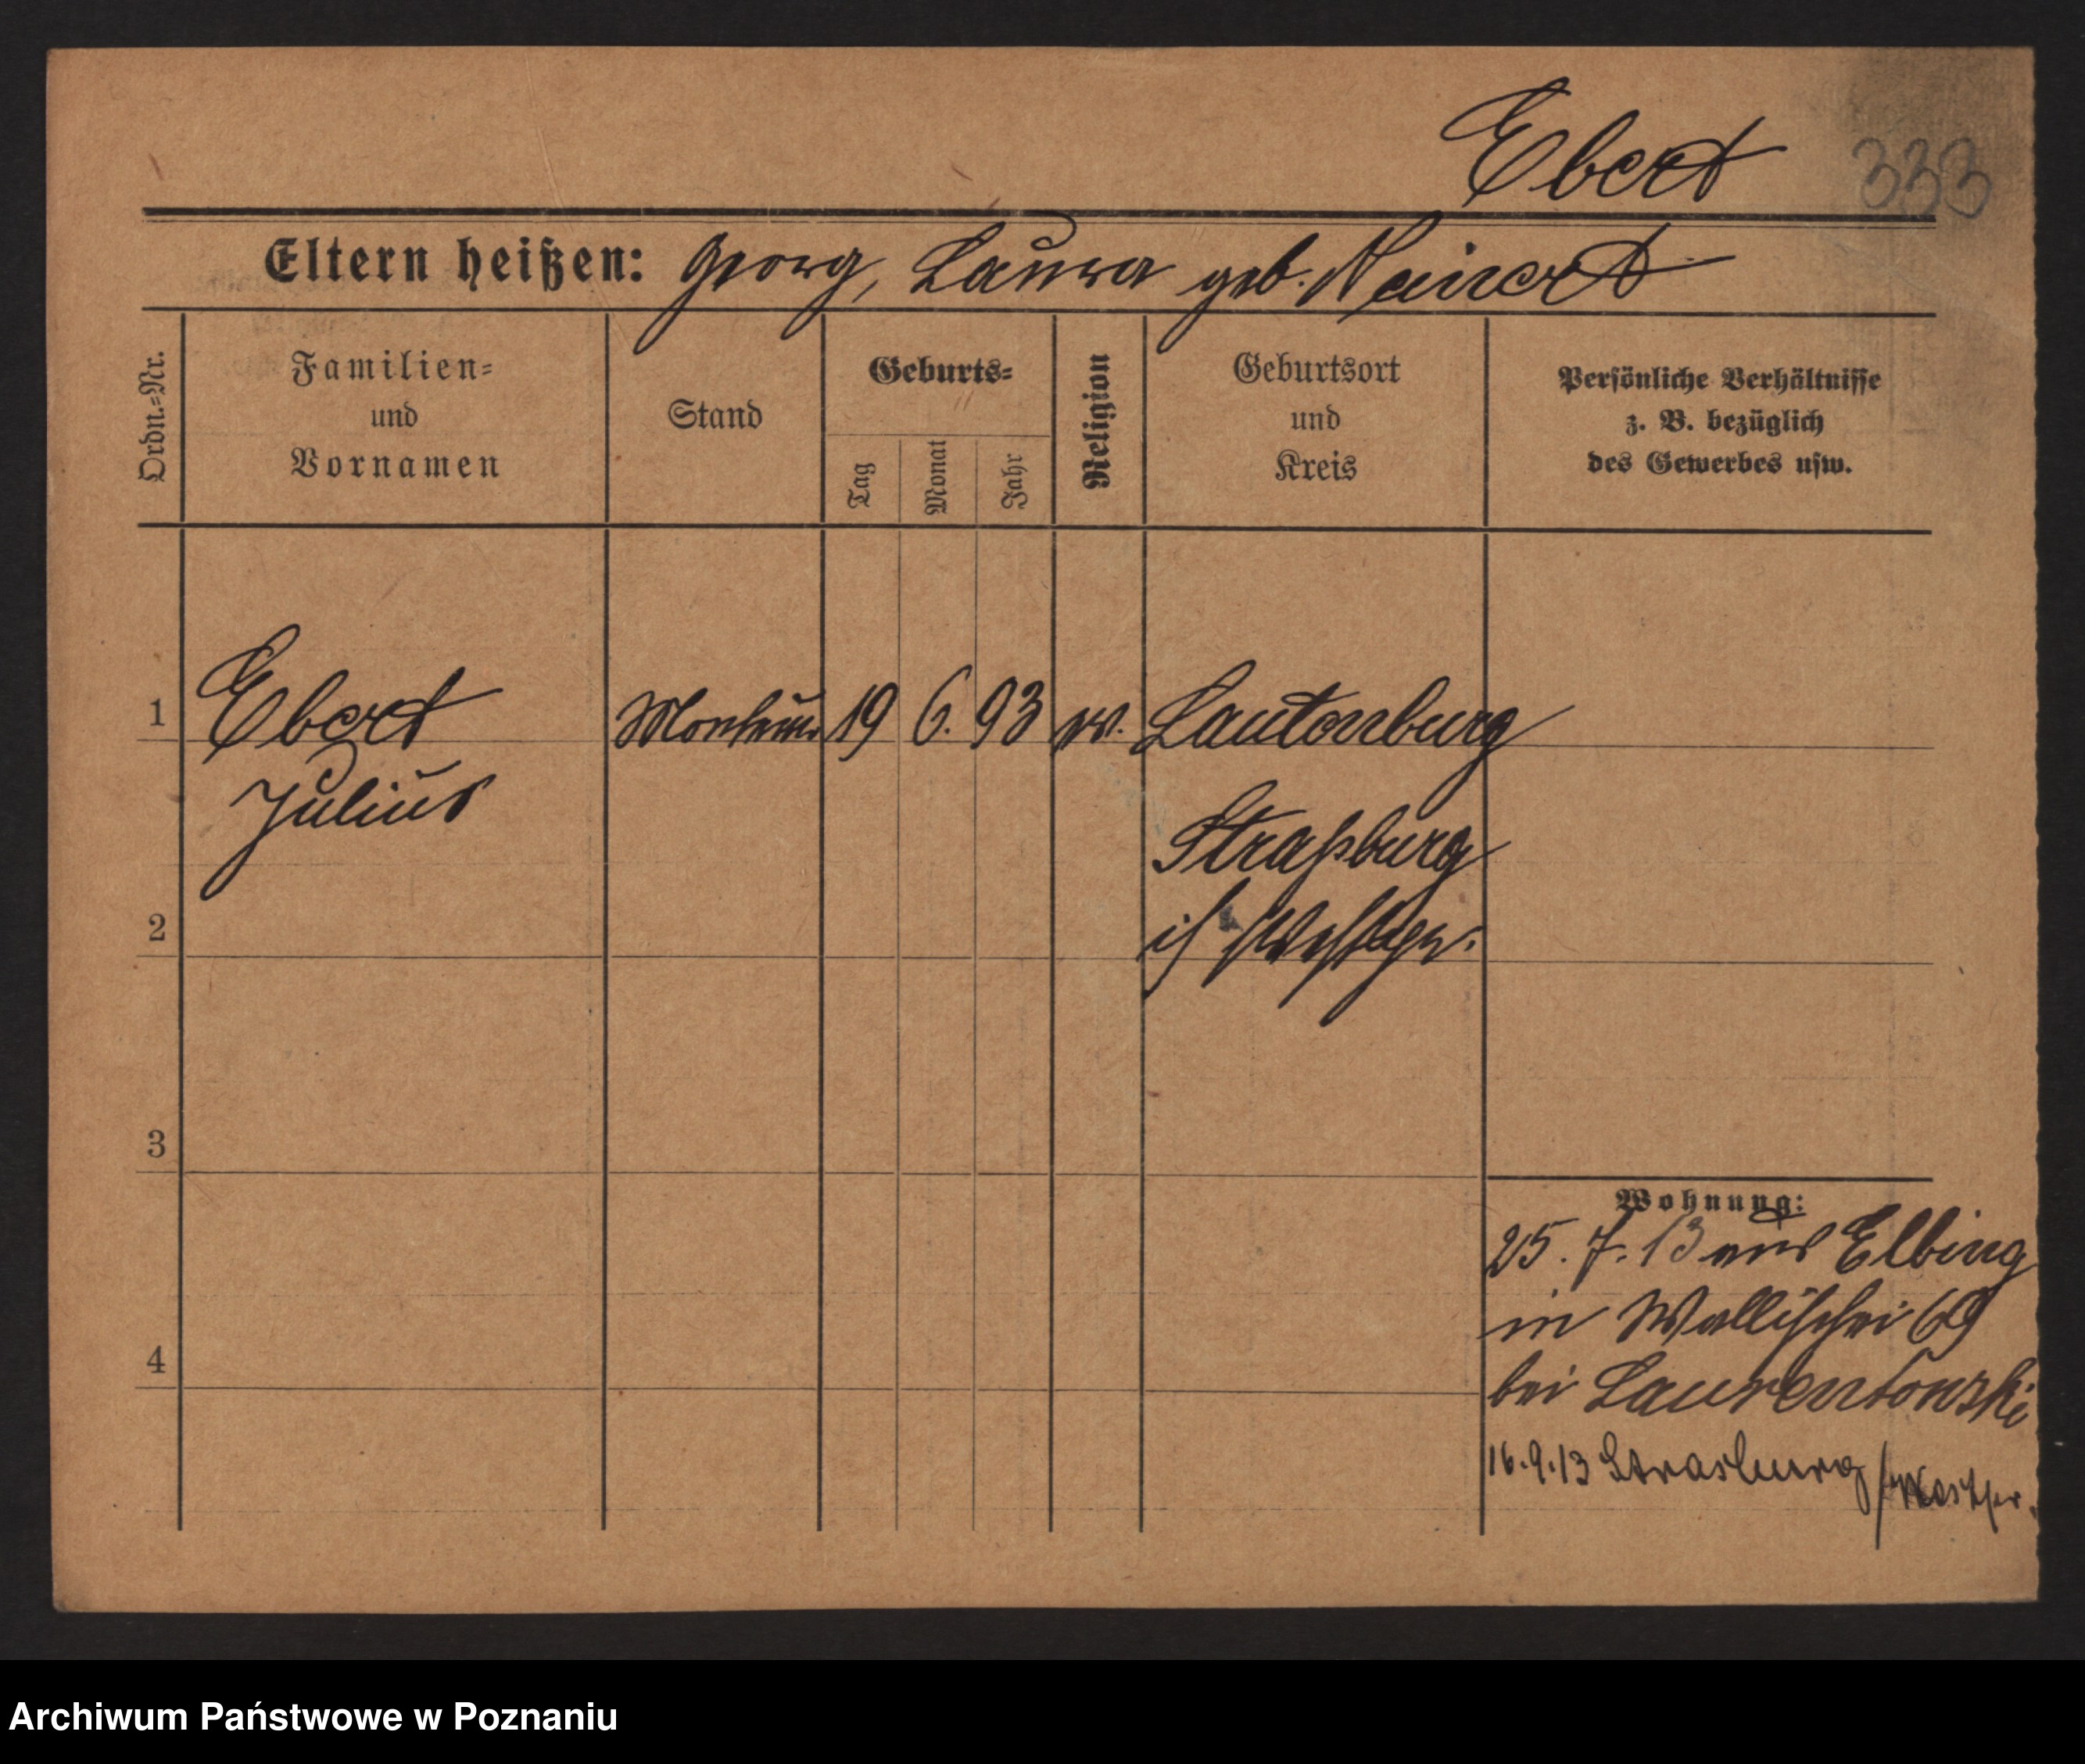 Ebert 333
Eltern heißen: Georg, Laura geb. Neinert
Ordn.=Nr.
Familien=
und
Vornamen
Stand
Geburts=
Tag
Monat
Jahr
Religion
Geburtsort
und
Kreis
Persönliche Verhältnisse
z. B. bezüglich
des Gewerbes usw.
1 Ebert Monteur 19 6. 93 ev. Lautenburg
Julius
Straßburg
2 i/ Westpr.
3
Wohnung:
25. 7. 13 aus Elbing
in Wallischei 69
4 bei Laurentowski
16.9.13 Strasburg /Westpr.
Archiwum Państwowe w Poznaniu